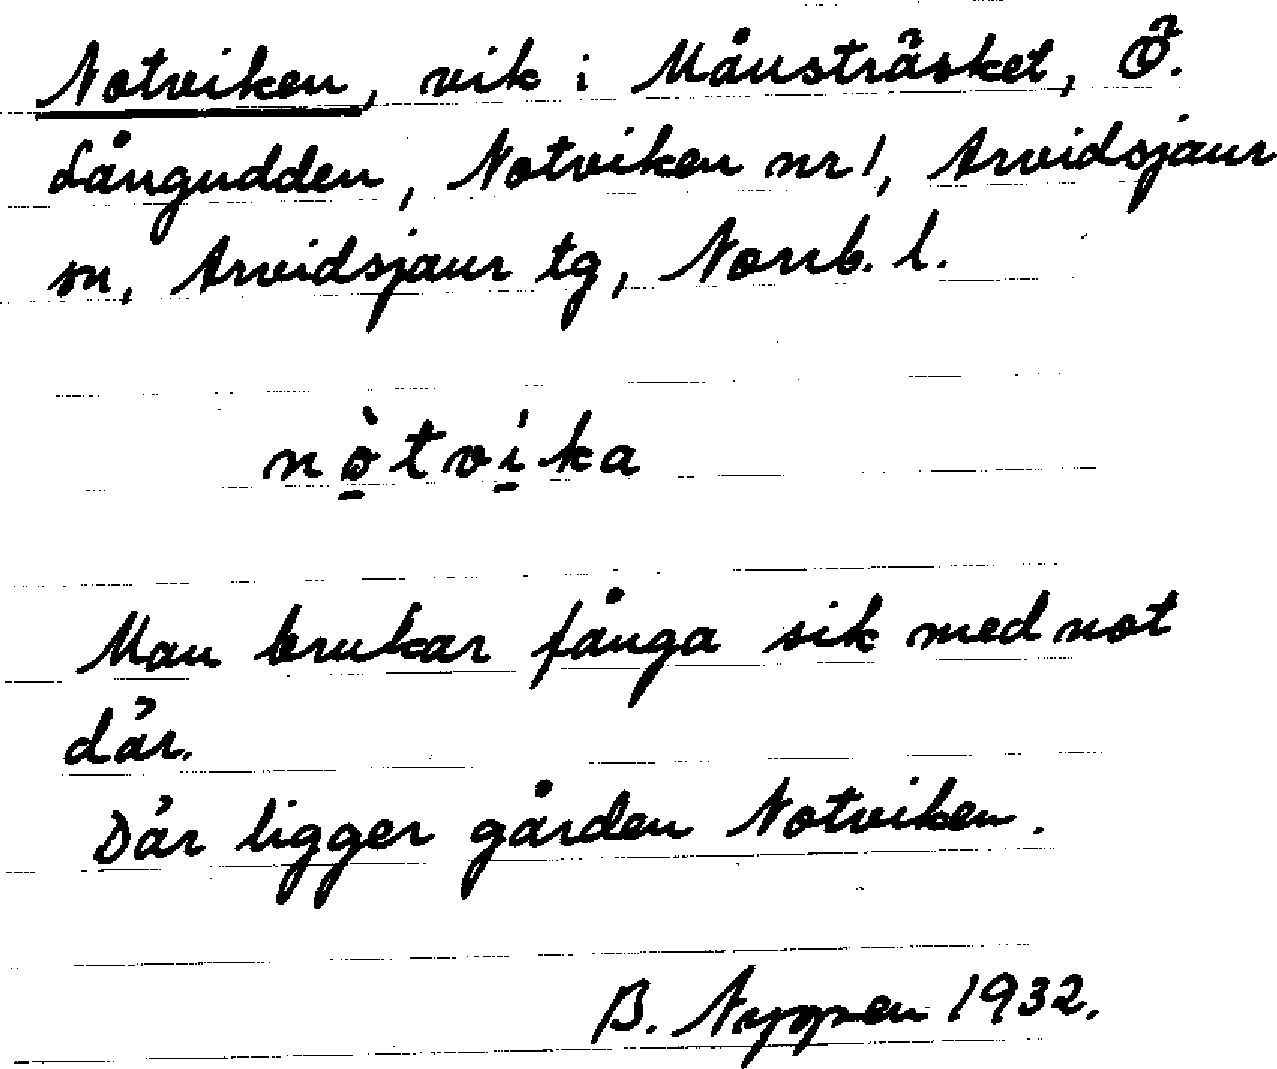 Notviken, vik i Månsträsket, Ö.
Långudden, Notviken nr 1, Arvidsjaur
sn, Arvidsjaur tg, Norrb. l.
nò̱tvi̱̍ka
Man brukar fånga sik med not
där.
Där ligger gården Notviken.
B. Nyppen 1932.